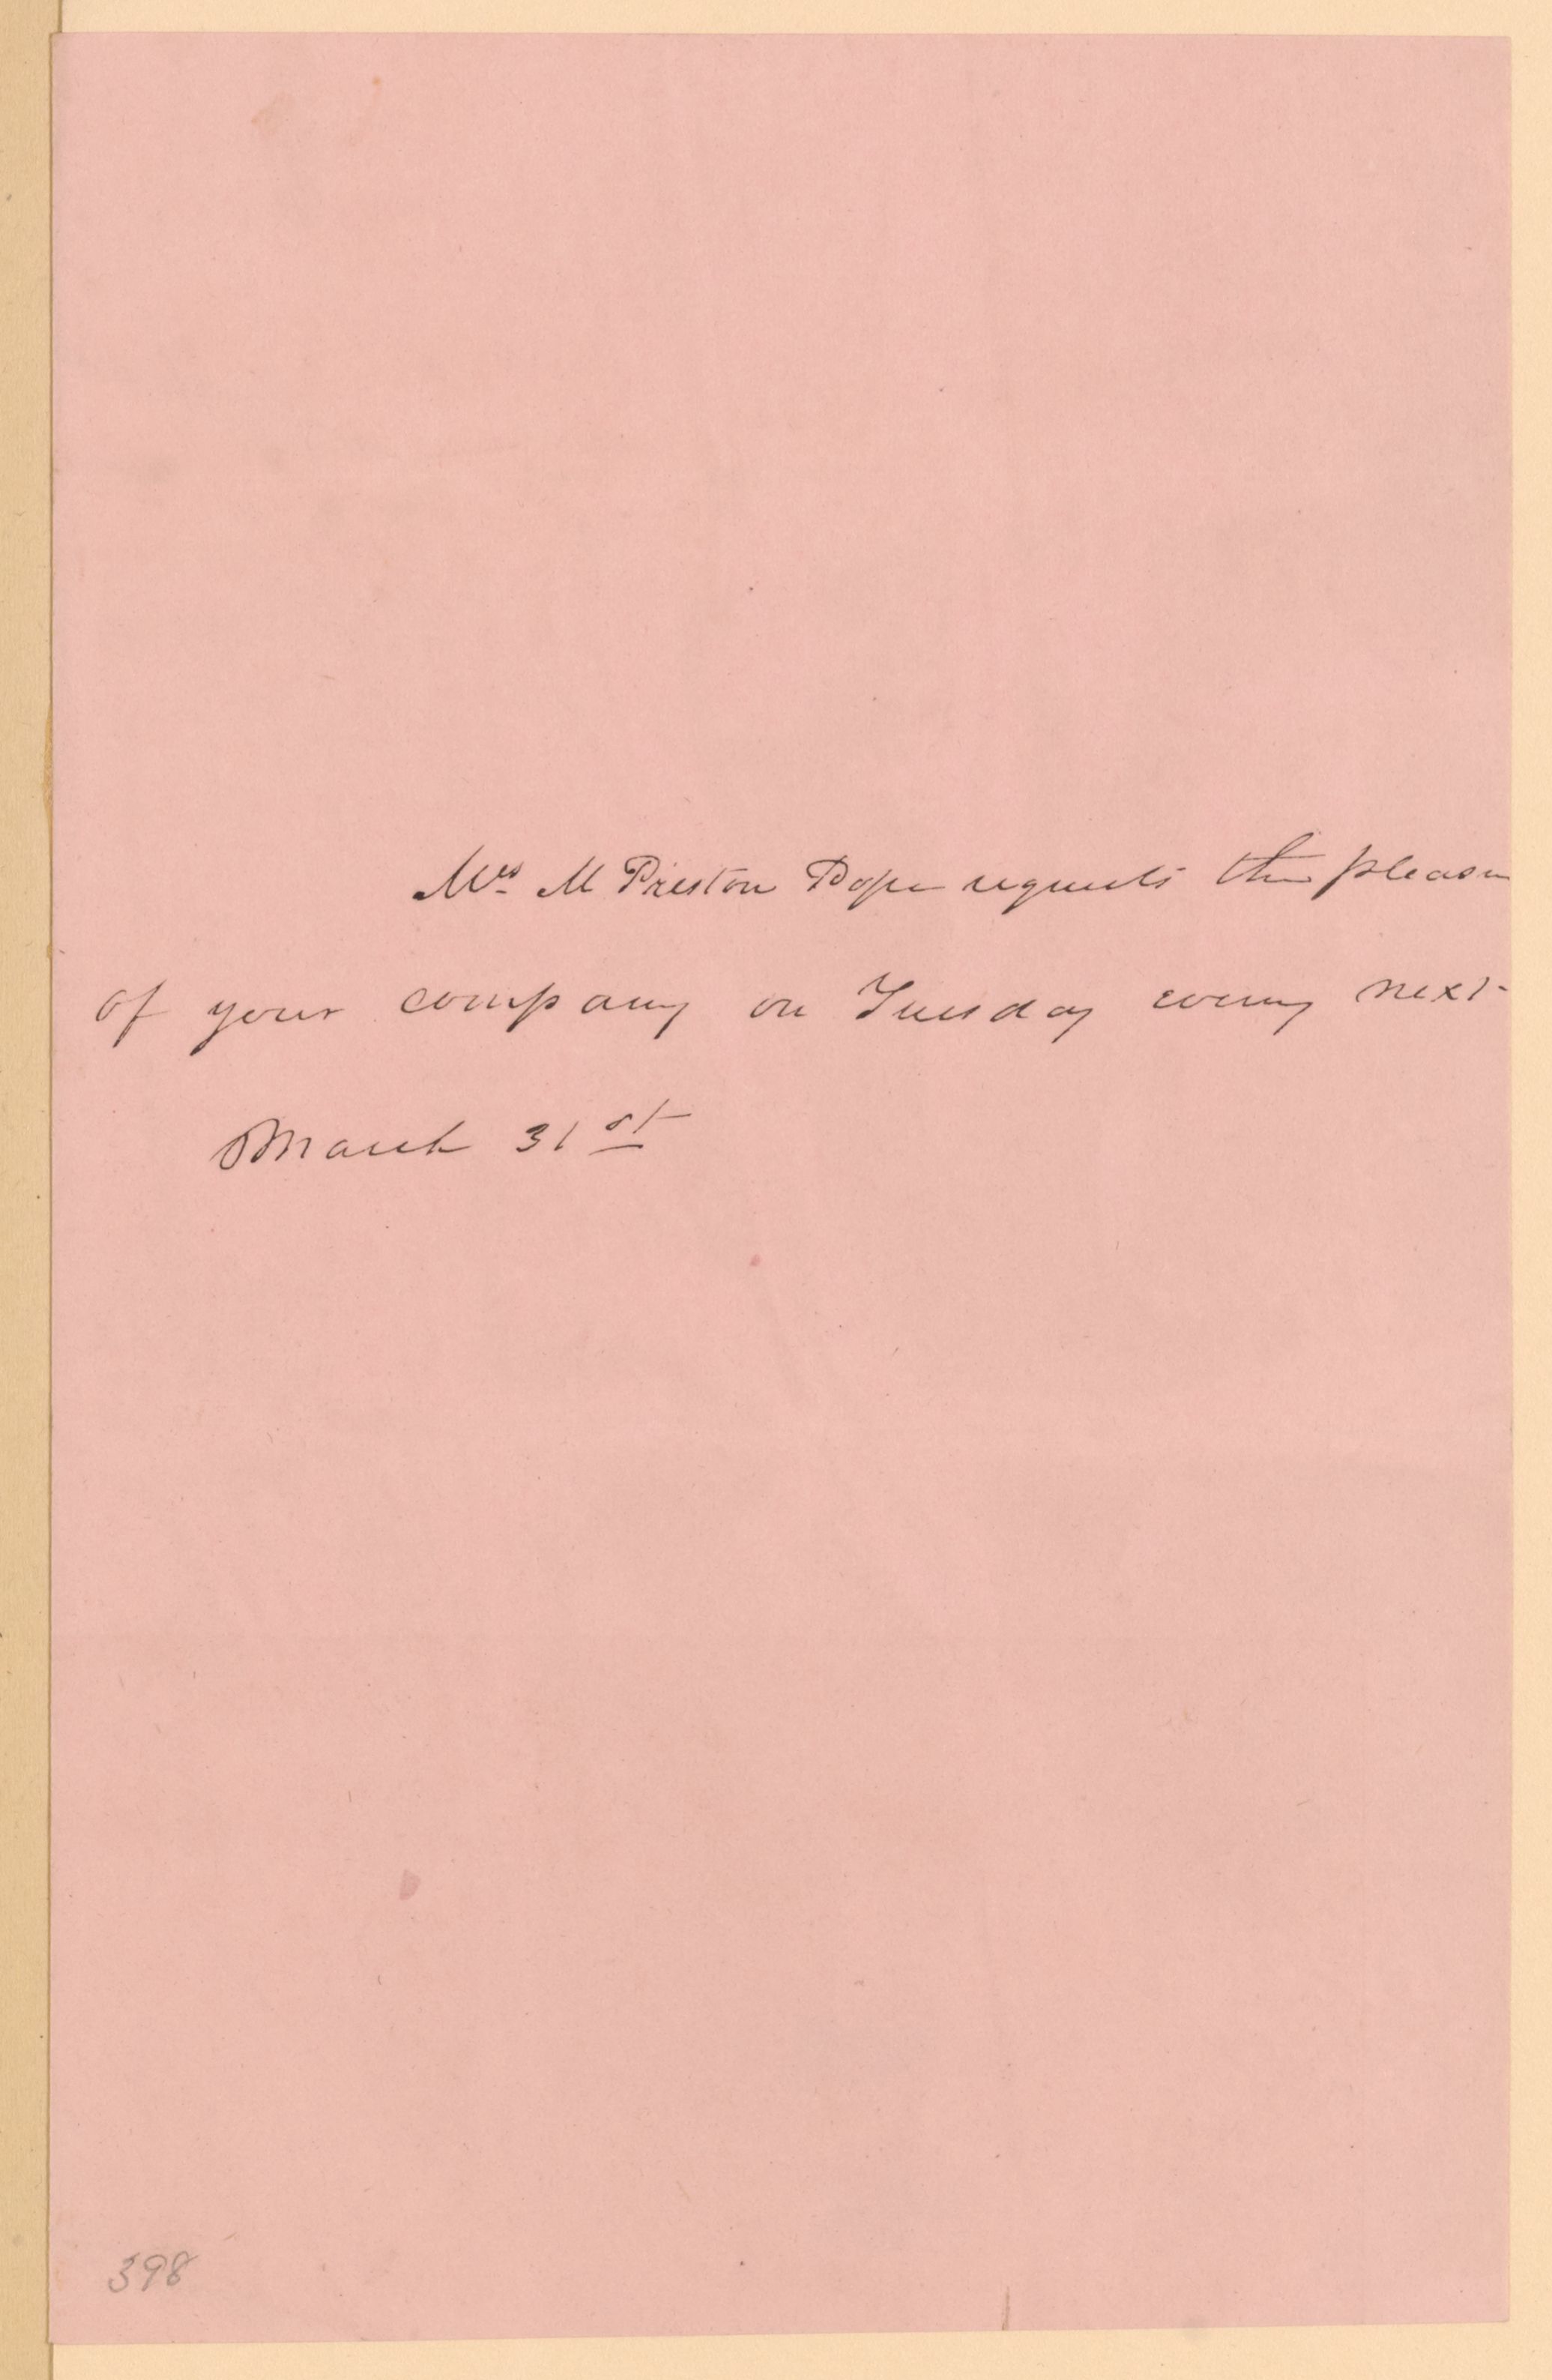 Mrs M Preston Pope requests the pleasu
of your company on Tuesday evening next
March 31st
398